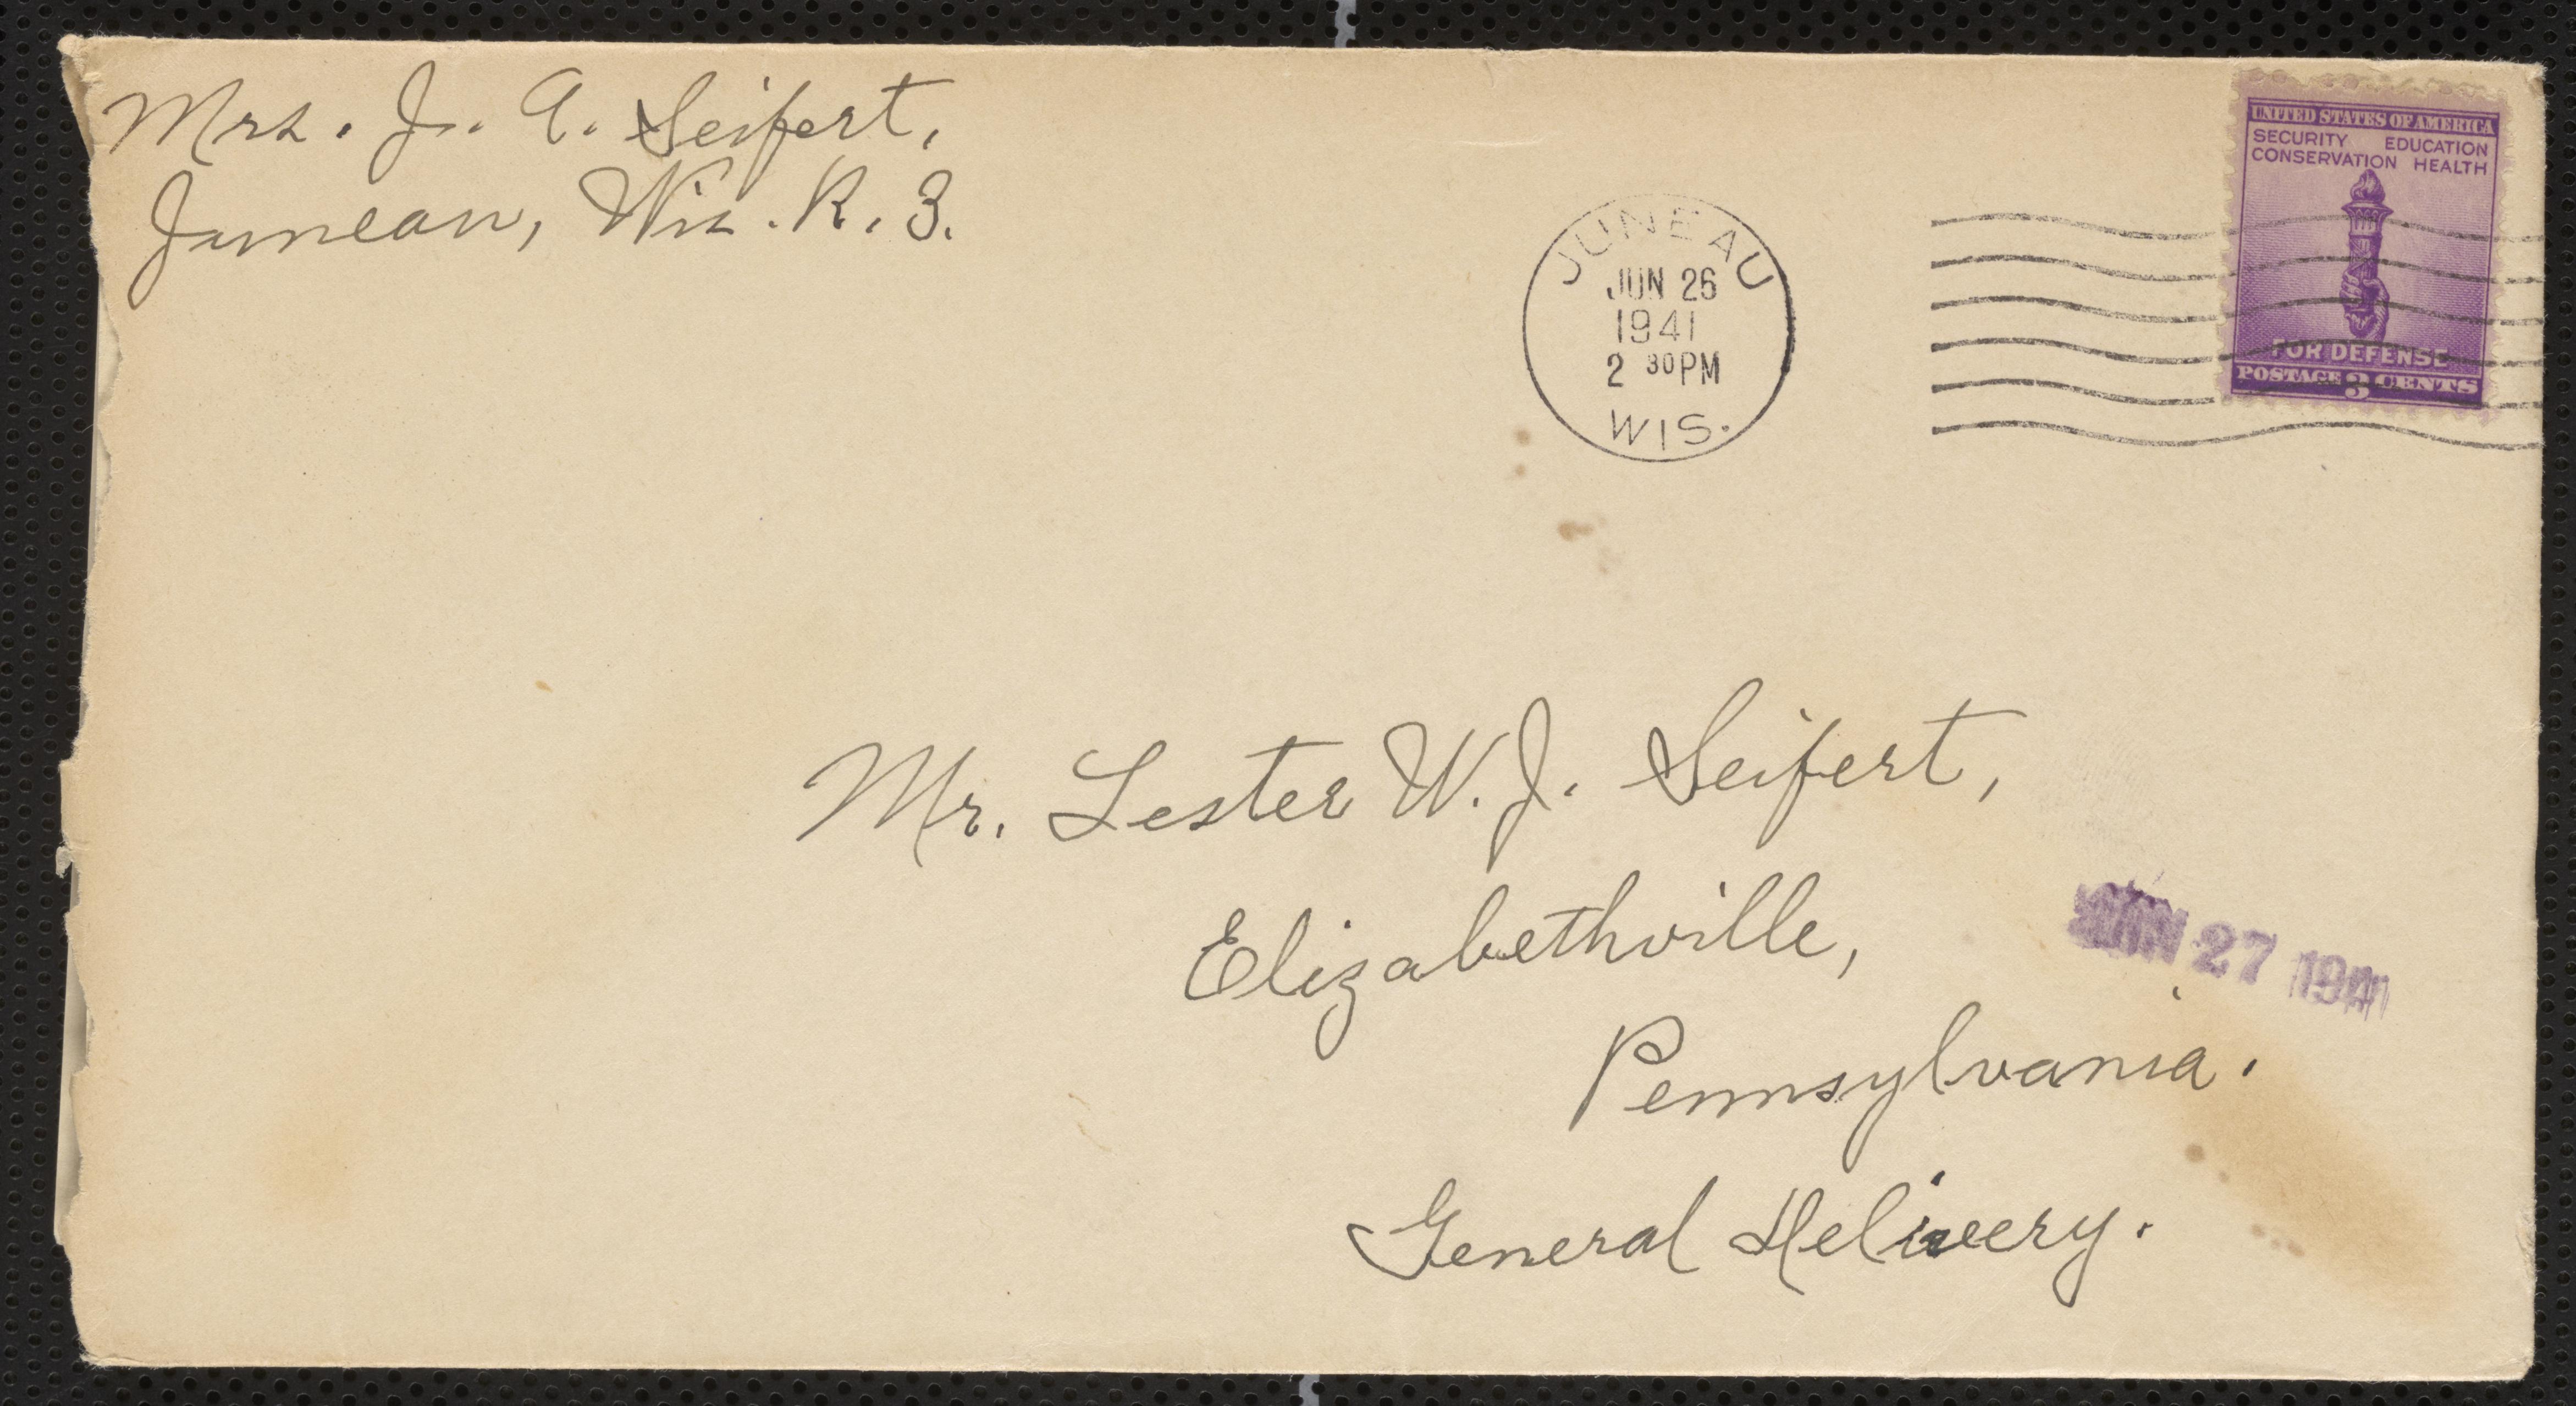 Mrs. J. A. Seifert,
Juneau, Wis. R. 3.
JUNEAU
JUN 26
1941
2 30PM
WIS.
UNITED STATES OF AMERICA
SECURITY EDUCATION
CONSERVATION HEALTH
FOR DEFENSE
POSTAGE 3 CENTS
Mr. Lester W. J. Seifert,
Elizabethville,
27 1941
Pennsylvania.
General Delivery.